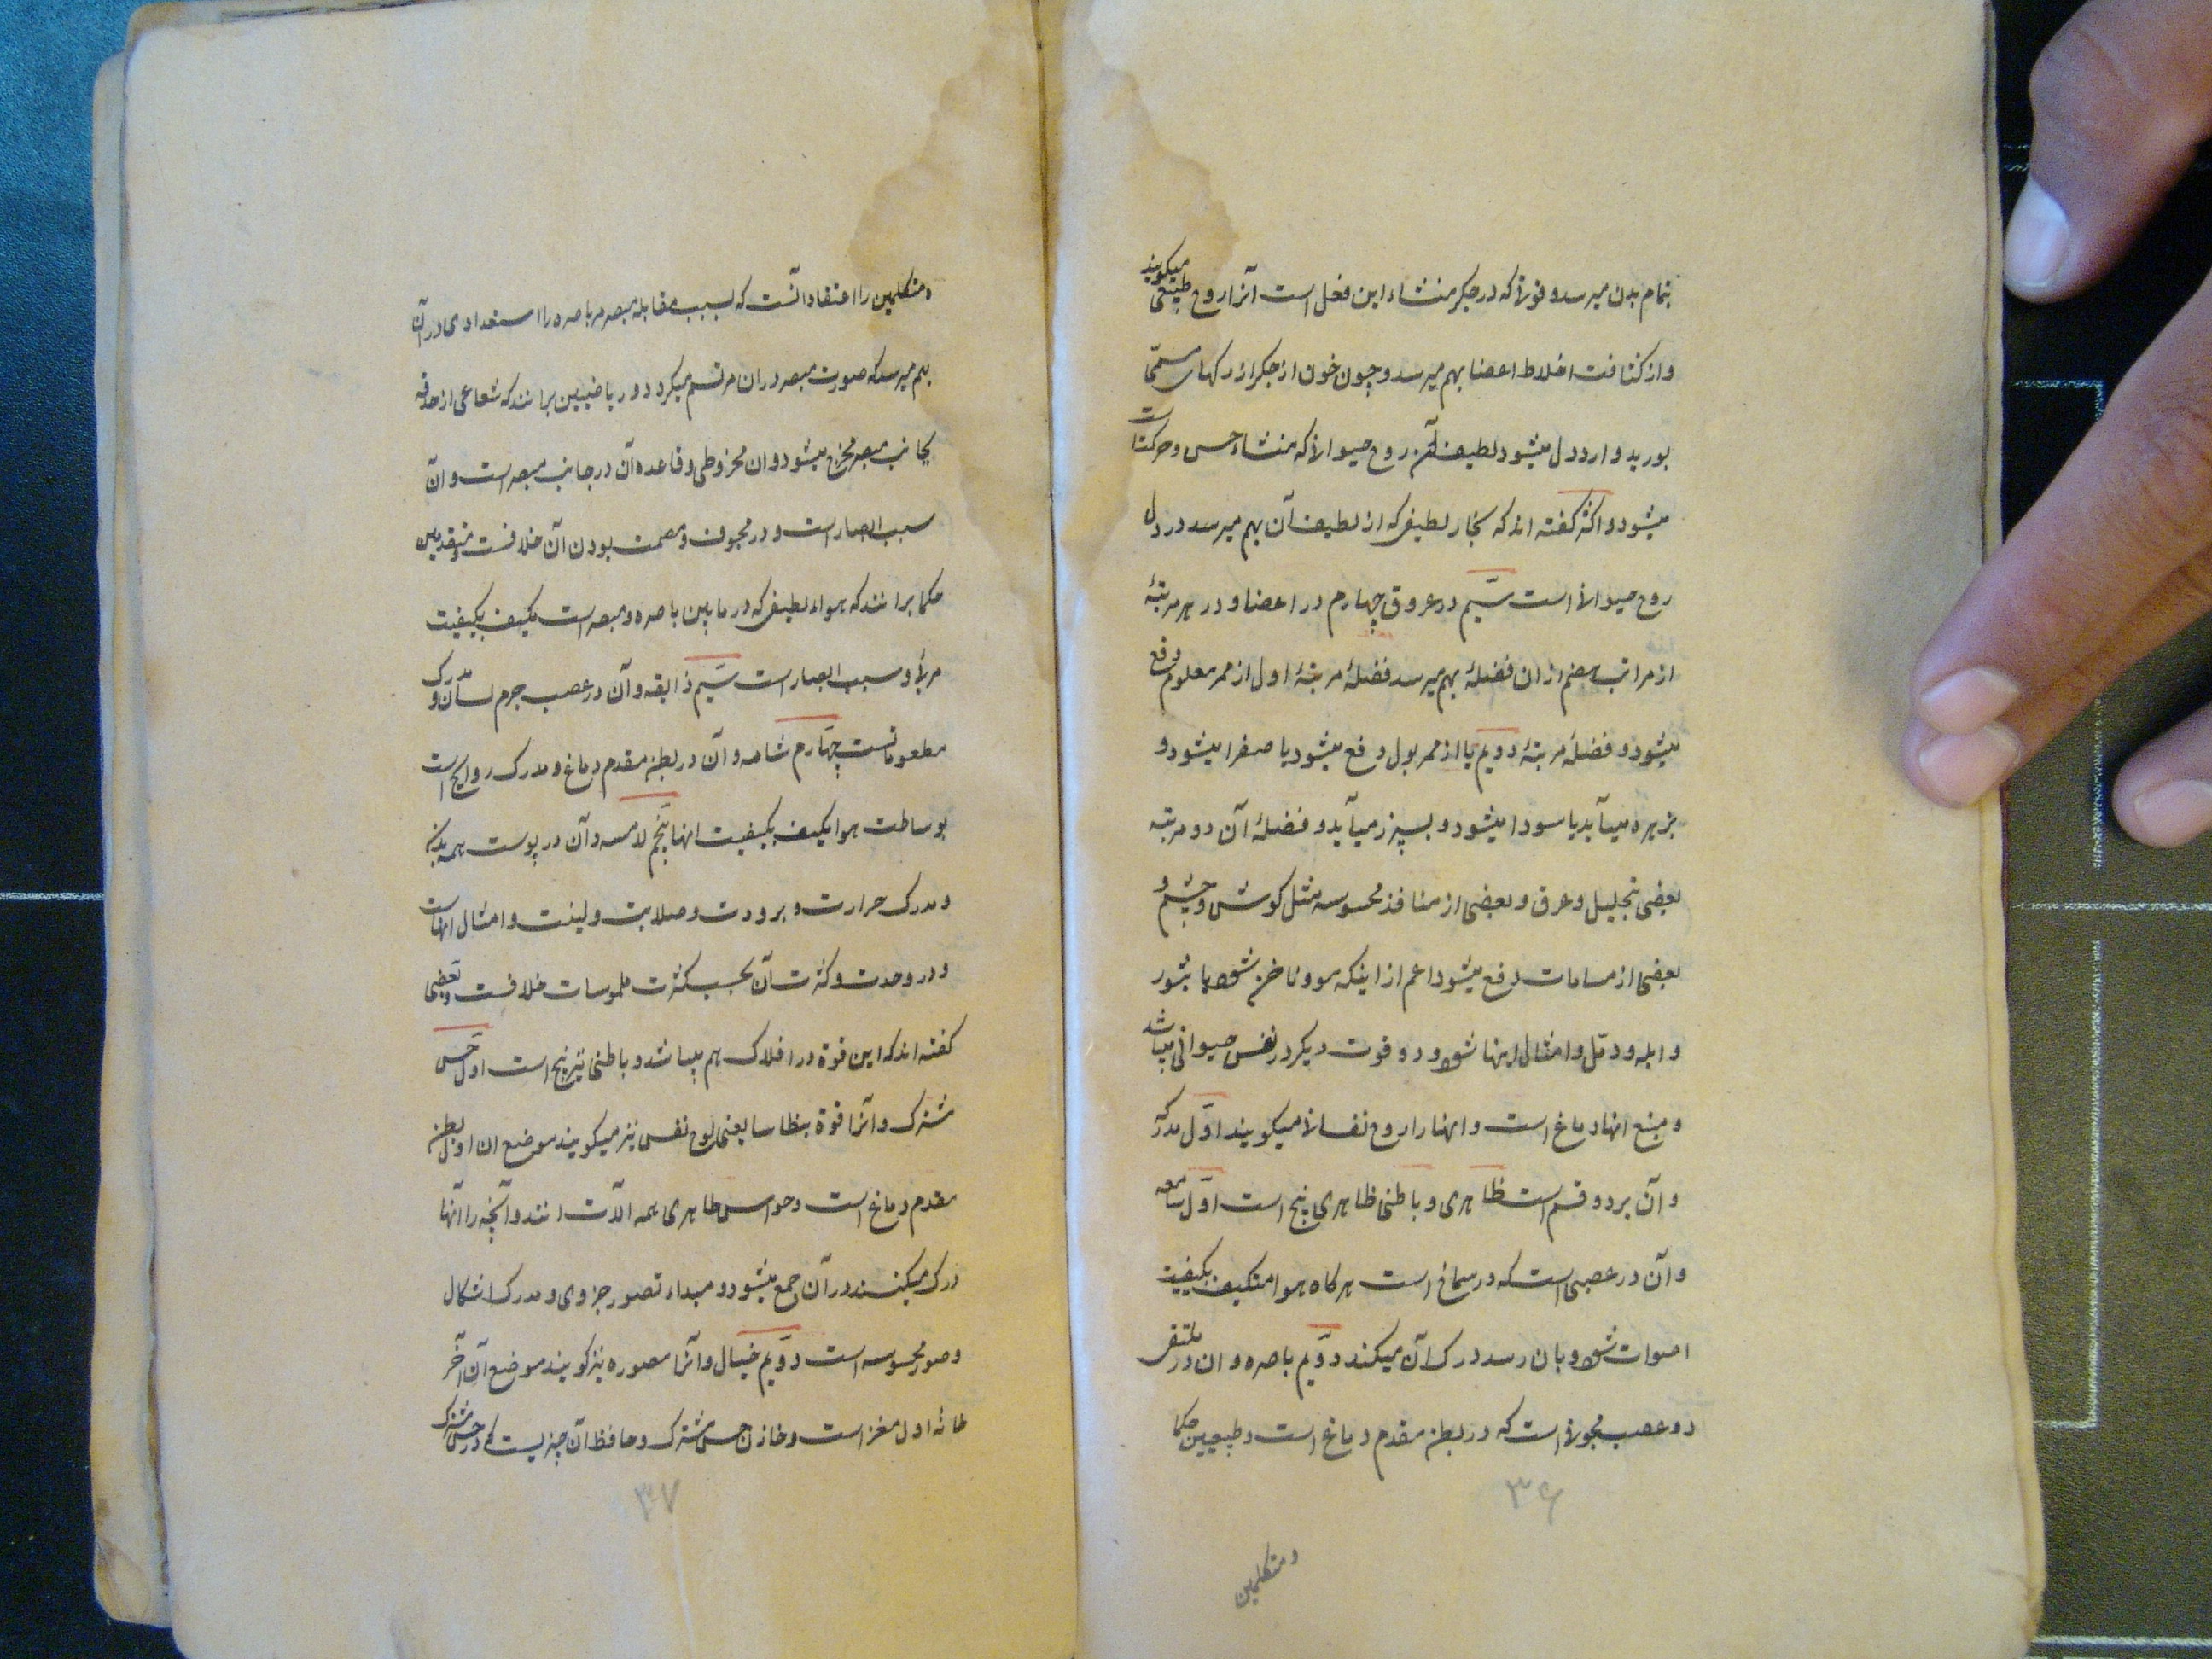 بتمام بدن میرسد و قوتی که در جکر منشاء این فعل است آنرا روح طبیعی میکویند
و از کثافت اخلاط اعضا بهم میرسد و چون خون از جکر از رکهای مسمّا
بورید وارد دل میشود لطیف آن روح حیوانی که منشاء حس و حرکتست
میشود و اکثر کفته اند که بخار لطیفی که از لطیف آن بهم میرسد در دل
روح حیوانی است سیّم در عروق چهارم در اعضا و در هر مرتبهٔ
از مراتب هضم ازان فضلهٔ بهم میرسد فضلهٔ مرتبهٔ اول از ممر معلوم دفع
میشود و فضلهٔ مرتبهٔ دویم یا از ممر بول دفع میشود یا صفرا میشود و
بزهره میآید یا سودا میشود و بسپرز میآید و فضلهٔ آن دو مرتبه
بعضی بتحلیل و عرق و بعضی از منافذ محسوسه مثل کوش و چشم و
بعضی از مسامات دفع میشود اعم از اینکه مو و ناخن شود یا بثور
و ابله و دمّل و امثال اینها شود و دو قوت دیکر در نفس حیوانی میباشد
و منبع انها دماغ است و انها را روح نفسانی میکویند اوّل مدرکه
و آن بر دو قسم است ظاهری و باطنی ظاهری پنج است اوّل سامعه
و آن در عصبی است که در صماخ است هرکاه هوا متکیف بکیفیت
اصوات شود و بان رسد درک آن میکند دوّیم باصره و ان در ملتقی
دو عصب مجوفی است که در بطن مقدم دماغ است و طبیعیین حکما
۳۶
و متکلمین
و متکلمین را اعتقاد آنست که بسبب مقابله مبصر مر باصره را استعدادی در آن
بهم میرسد که صورت مبصر در ان مرتسم میکردد و ریاضیین برانند که شعاعی از حدقه
بجانب مبصر مخرج میشود و ان مخروطی و قاعده آن در جانب مبصر است و آن
سبب ابصار است و در مجوف و مصمت بودن آن خلافست و متقدمین
حکما برانند که هواء لطیفی که در مابین باصره و مبصر است مکیف بکیفیت
مرئی و سبب ابصار است سیّم ذایقه و آن در عصب جرم لسان و مدرک
مطعوماتست چهارم شامه و آن در بطن مقدم دماغ و مدرک روایح است
بوساطت هوا مکیف بکیفیت انها پنجم لامسه و آن در پوست همه بدن
و مدرک حرارت و برودت و صلابت و لینت و امثال انهاست
و در وحدت و کثرت آن بحسب کثرت ملموسات خلافست و بعضی
کفته اند که این قوة در افلاک هم میباشد و باطنی نیز پنج است اول حس
مشترک و آنرا قوة بنطاسیا یعنی لوح نفس نیز میکویند موضع ان اول بطن
مقدم دماغ است و حواس ظاهری همه آلات انند و آنچه را آنها
درک میکنند در آن جمع میشود و مبداء تصور جزوی و مدرک اشکال
و صور محسوسه است دوّیم خیال و آنرا مصوره نیز کویند موضع آن آخر
خانه اول مغز است و خازن حس مشترک و حافظ آن چیزیست که در حس مشترک
۳۷